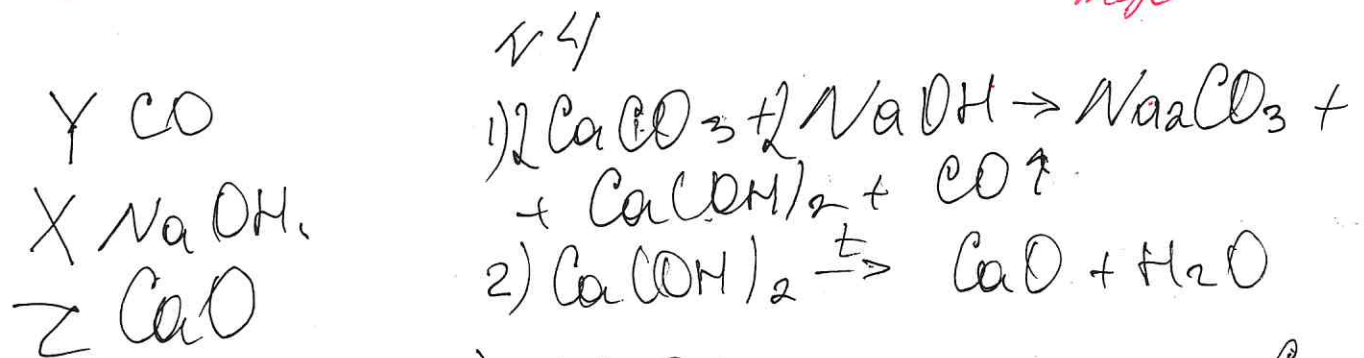 N4
Y CO
X NaOH.
Z CaO
1) 2CaCO3 + 2NaOH → Na2CO3 +
+ Ca(OH)2 + CO↑
2) Ca(OH)2 t→ CaO + H2O